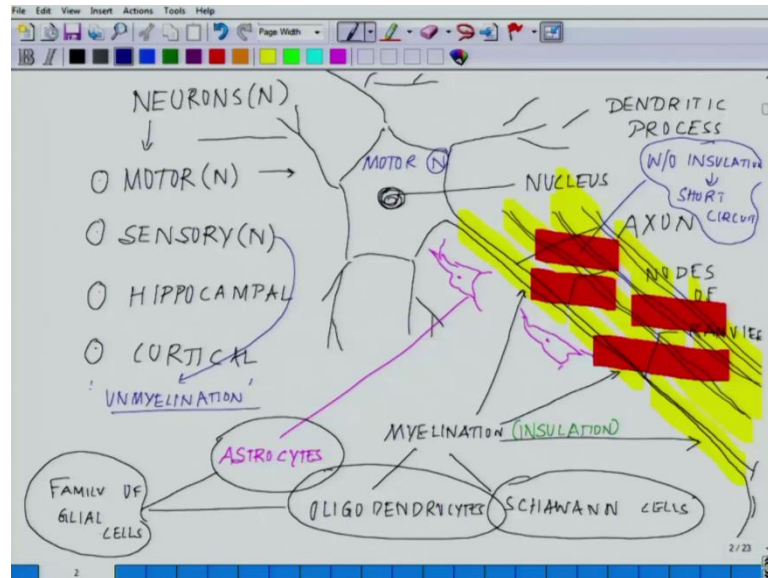 File Edit View Insert Actions Tools Help
Page Width
B I
NEURONS(N)
MOTOR (N)
SENSORY (N)
HIPPOCAMPAL
CORTICAL
'UNMYELINATION'
MOTOR N
DENDRITIC
PROCESS
W/O INSULATION
SHORT
CIRCUIT
NUCLEUS
AXON
NODES
OF
RANVIER
MYELINATION (INSULATION)
ASTROCYTES
FAMILY OF
GLIAL
CELLS
OLIGO DENDROCYTES
SCHAWANN CELLS
2/23
2